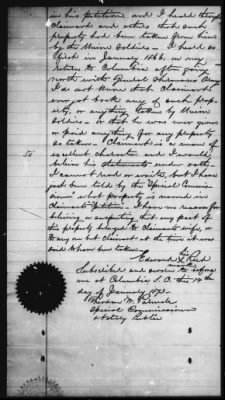 in his petition and I heard through
claimant and others that said
property had been taken from him
by the Union Soldiers. I heard so
first in January 1866, on my
return to Columbia after going
north with General Sherman's Army
I do not know that claimant
ever got back any of said prop-
erty, or anything taken by Union
Soldiers - or that he was ever given
or paid anything for any property
so taken. Claimant is a man of
excellent character and I would
believe his statements under oath.
I cannot read or write, but I have
just been told by the Special Commis-
sioner what property is named in
Claimants petition. I have no reason for
believing or suspecting that any part of
this property belonged to Claimants wife, or
to any one but claimant at the time it was
said to have been taken.
Edward Reed
mark
Subscribed and sworn to before
me at Columbia S.C. this 14th
day of January 187
Special Commissioner
Notary Public